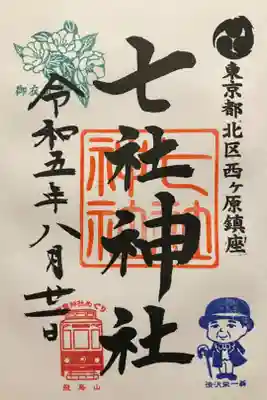 東京都北区西ヶ原鎮座
七社神社
七社神社
令和五年八月廿一日
飛鳥山
渋沢栄一翁